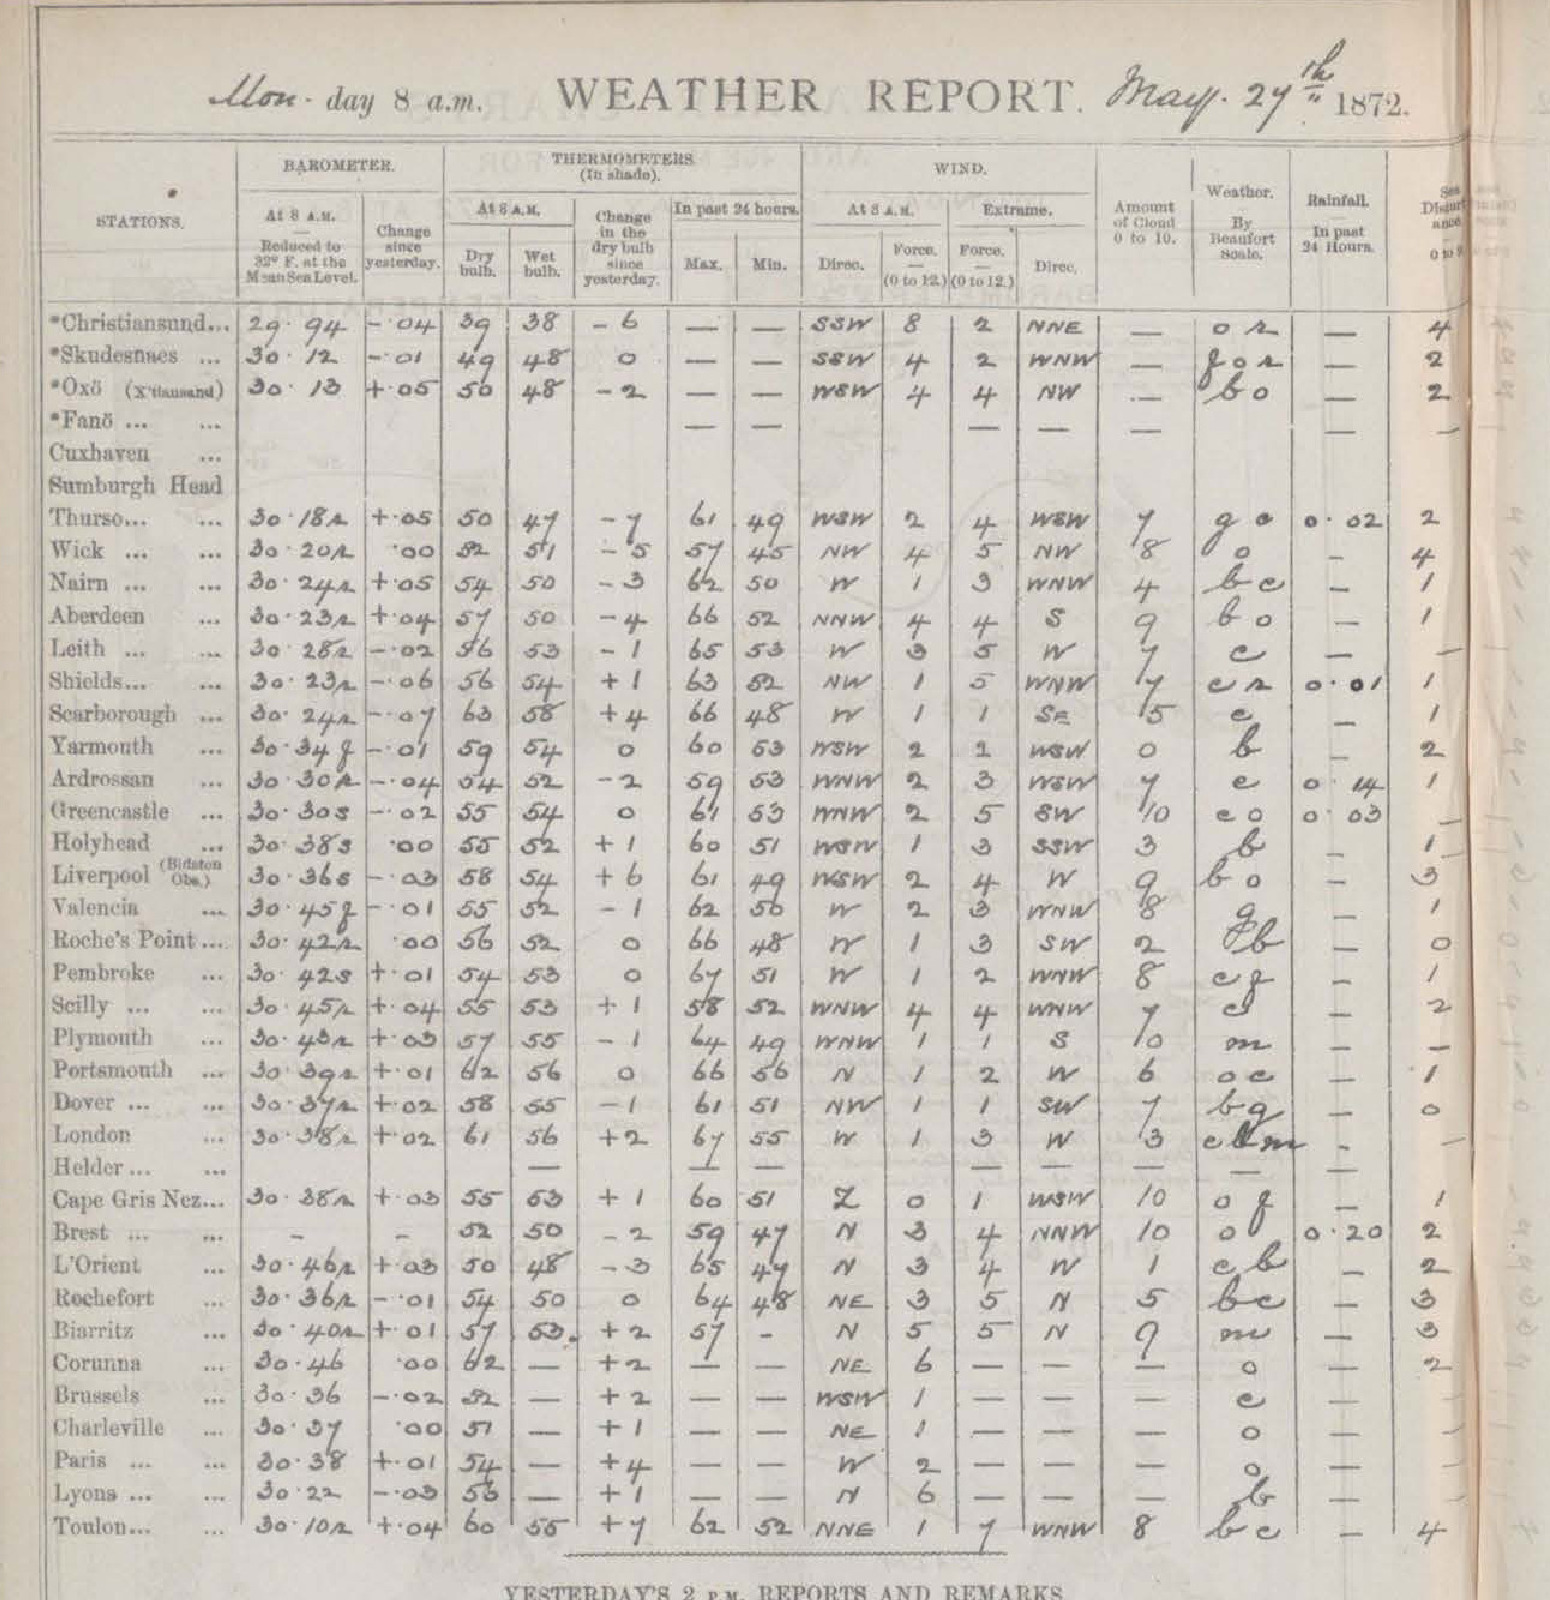 Mon. day 8 a.m. WEATHER REPORT. May. 27th 1872.
STATIONS. BAROMETER. THERMOMETERS (In shade). WIND. Amount of Cloud 0 to 10. Weather. By Beaufort Scale. Rainfall. In past 24 Hours.
At 8 A.M. Reduced to 32° F. at the Mean Sea Level. Change since yesterday. At 8 A.M. Dry bulb. Wet bulb. Change in the dry bulb since yesterday. In past 24 hours. Max. Min. At 8 A.M. Direc. Force. (0 to 12.) Extreme. Force. (0 to 12.) Direc.
*Christiansund... 29.94 -.04 39 38 -6 — — SSW 8 2 NNE — o r — 4
*Skudesnaes ... 30.12 -.01 49 48 0 — — SSW 4 2 WNW — f o r — 2
*Oxö (X'tiansand) 30.13 +.05 50 48 -2 — — WSW 4 4 NW — b o — 2
*Fanö ... ... — — — — — — —
Cuxhaven ...
Sumburgh Head
Thurso... ... 30.18r +.05 50 47 -7 61 49 WSW 2 4 WSW 7 g o 0.02 2
Wick ... ... 30.20r .00 52 51 -5 57 45 NW 4 5 NW 8 o — 4
Nairn ... ... 30.24r +.05 54 50 -3 62 50 W 1 3 WNW 4 b c — 1
Aberdeen ... 30.23r +.04 57 50 -4 66 52 NNW 4 4 S 9 b o — 1
Leith ... ... 30.28r -.02 56 53 -1 65 53 W 3 5 W 7 c — —
Shields... ... 30.23r -.06 56 54 +1 63 52 NW 1 5 WNW 7 c r 0.01 1
Scarborough ... 30.24r -.07 63 58 +4 66 48 W 1 1 SE 5 c — 1
Yarmouth ... 30.34f -.01 59 54 0 60 53 WSW 2 2 WSW 0 b — 2
Ardrossan ... 30.30r -.04 54 52 -2 59 53 WNW 2 3 WSW 7 c 0.14 1
Greencastle ... 30.30s -.02 55 54 0 61 53 WNW 2 5 SW 10 c o 0.03 —
Holyhead ... 30.38s .00 55 52 +1 60 51 WSW 1 3 SSW 3 b — 1
Liverpool (Bidston Obs.) 30.36s -.03 58 54 +6 61 49 WSW 2 4 W 9 b o — 3
Valencia ... 30.45f -.01 55 52 -1 62 50 W 2 3 WNW 8 g — 1
Roche's Point ... 30.42r .00 56 52 0 66 48 W 1 3 SW 2 b — 0
Pembroke ... 30.42s +.01 54 53 0 67 51 W 1 2 WNW 8 c f — 1
Scilly ... ... 30.45r +.04 55 53 +1 58 52 WNW 4 4 WNW 7 c — 2
Plymouth ... 30.43r +.03 57 55 -1 64 49 WNW 1 1 S 10 m — —
Portsmouth ... 30.39r +.01 62 56 0 66 56 N 1 2 W 6 o c — 1
Dover ... ... 30.37r +.02 58 55 -1 61 51 NW 1 1 SW 7 b g — 0
London ... 30.38r +.02 61 56 +2 67 55 W 1 3 W 3 c m - —
Helder ... ... — — — — — — — —
Cape Gris Nez... 30.38r +.03 55 53 +1 60 51 Z 0 1 WSW 10 o f — 1
Brest ... ... - - 52 50 -2 59 47 N 3 4 NNW 10 o 0.20 2
L'Orient ... 30.46r +.03 50 48 -3 65 47 N 3 4 W 1 c b — 2
Rochefort ... 30.36r -.01 54 50 0 64 48 NE 3 5 N 5 b c — 3
Biarritz ... 30.40r +.01 57 53. +2 57 - N 5 5 N 9 m — 3
Corunna ... 30.46 .00 62 — +2 — — NE 6 — — — o — 2
Brussels ... 30.36 -.02 52 — +2 — — WSW 1 — — — c — —
Charleville ... 30.37 .00 51 — +1 — — NE 1 — — — o — —
Paris ... ... 30.38 +.01 54 — +4 — — W 2 — — — o — —
Lyons ... ... 30.22 -.03 53 — +1 — — N 6 — — — b — —
Toulon... ... 30.10r +.04 60 55 +7 62 52 NNE 1 7 WNW 8 b c — 4
YESTERDAY'S 2 P.M. REPORTS AND REMARKS